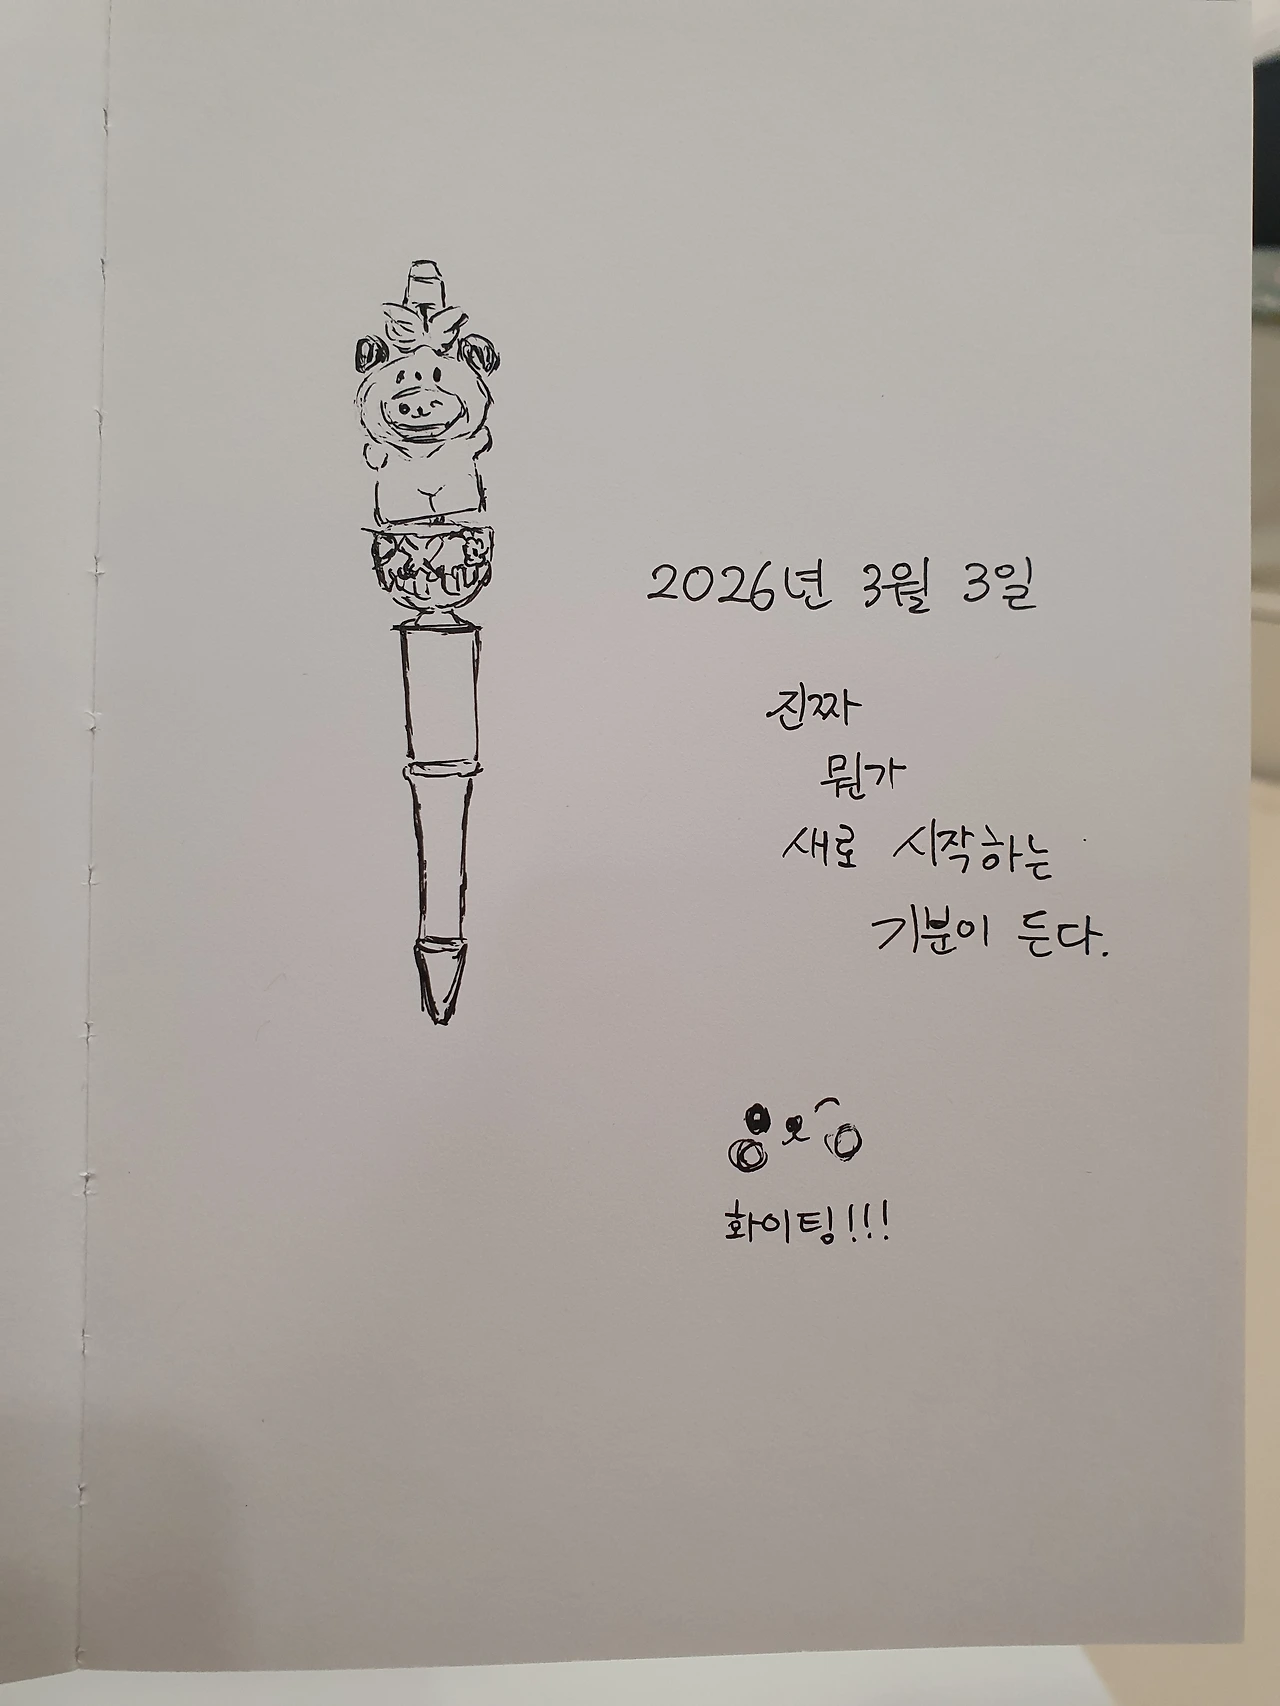 2026년 3월 3일
진짜
뭔가
새로 시작하는
기분이 든다.
화이팅!!!